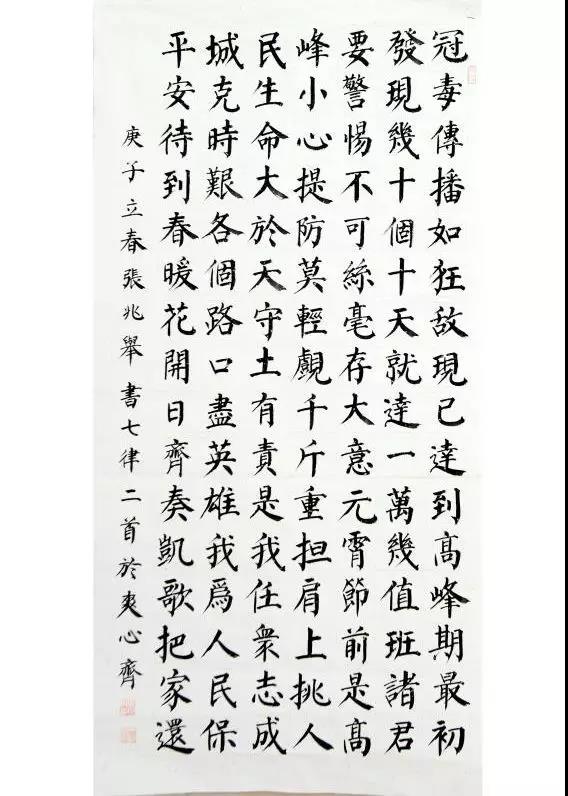 冠毒傳播如狂敌現已達到高峰期最初
發現幾十個十天就達一萬幾值班諸君
要警惕不可絲毫存大意元霄節前是高
峰小心提防莫輕覷千斤重担肩上挑人
民生命大於天守土有責是我任衆志成
城克時艱各個路口盡英雄我爲人民保
平安待到春暖花開日齊奏凱歌把家還
庚子立春張兆舉書七律二首於爽心齊